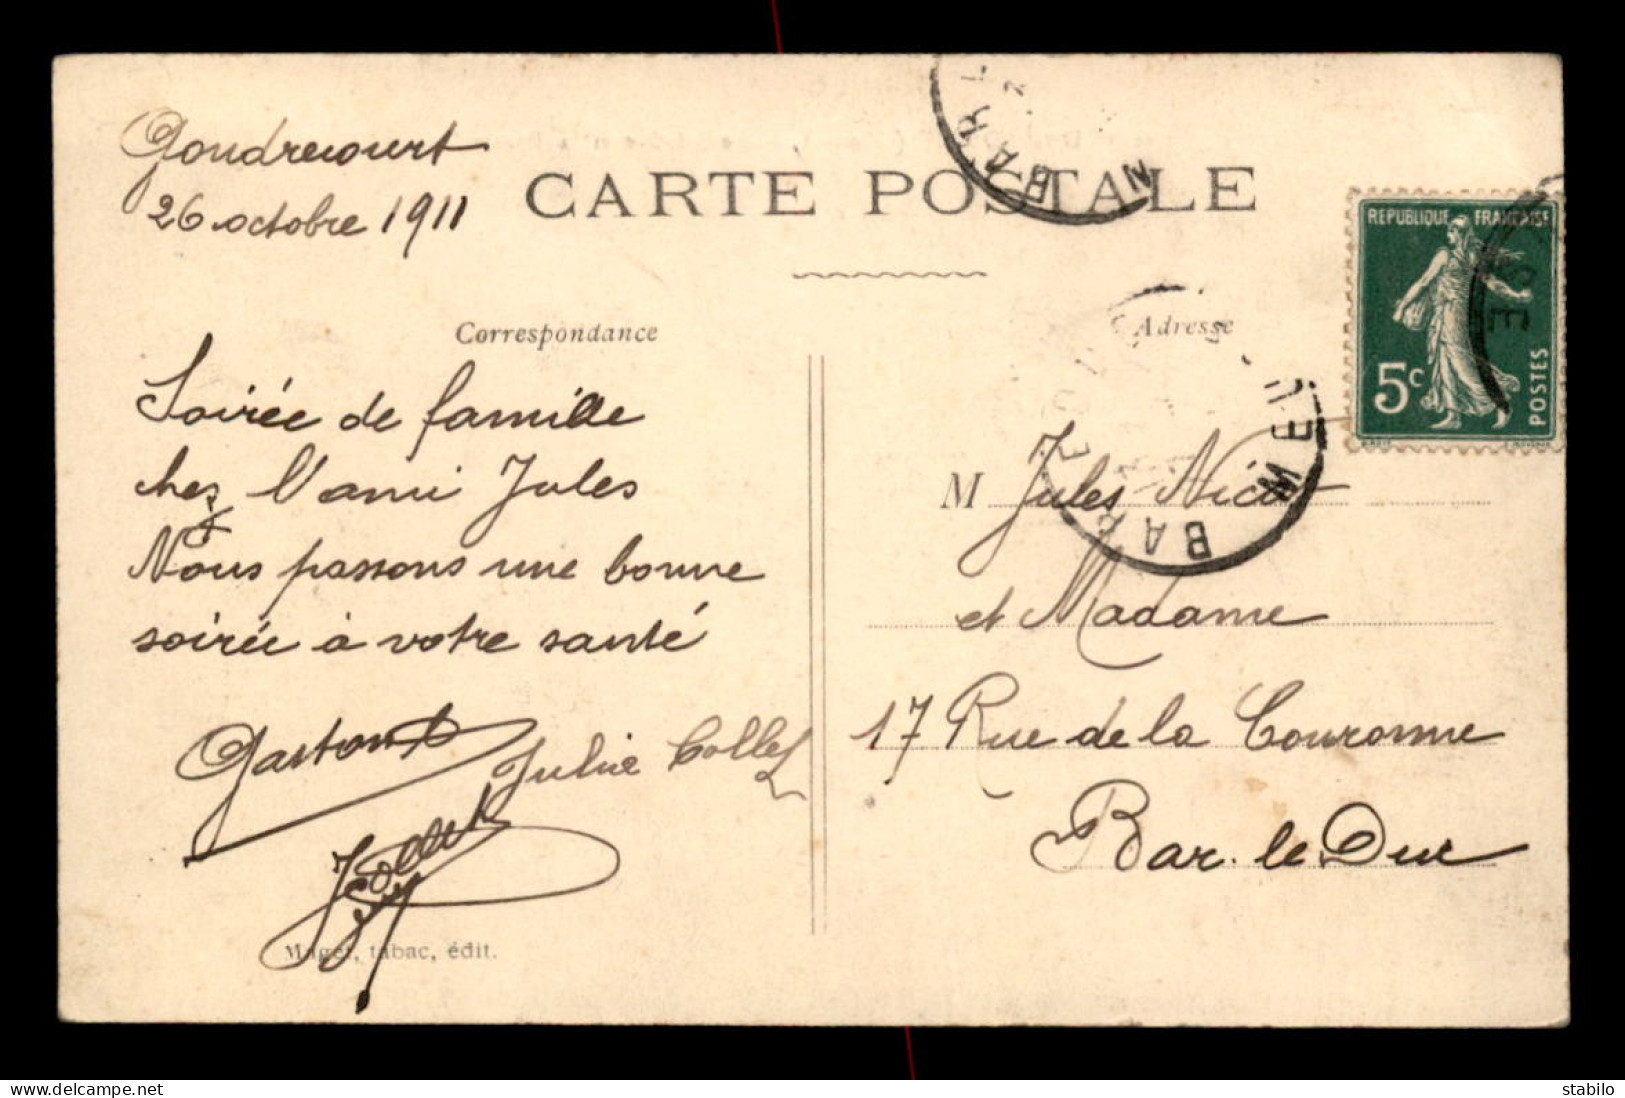 Gondrecourt
26 octobre 1911
CARTE POSTALE
Correspondance
Adresse
Soirée de famille
chez l'ami Jules
Nous passons une bonne
soirée à votre santé
Gaston
Julie Collet
J Collet
Maget, tabac, édit.
M Jules Nicot
et Madame
17 Rue de la Couronne
Bar-le-Duc
REPUBLIQUE FRANÇAISE
5c
POSTES
BAR L
BAR
MEUSE